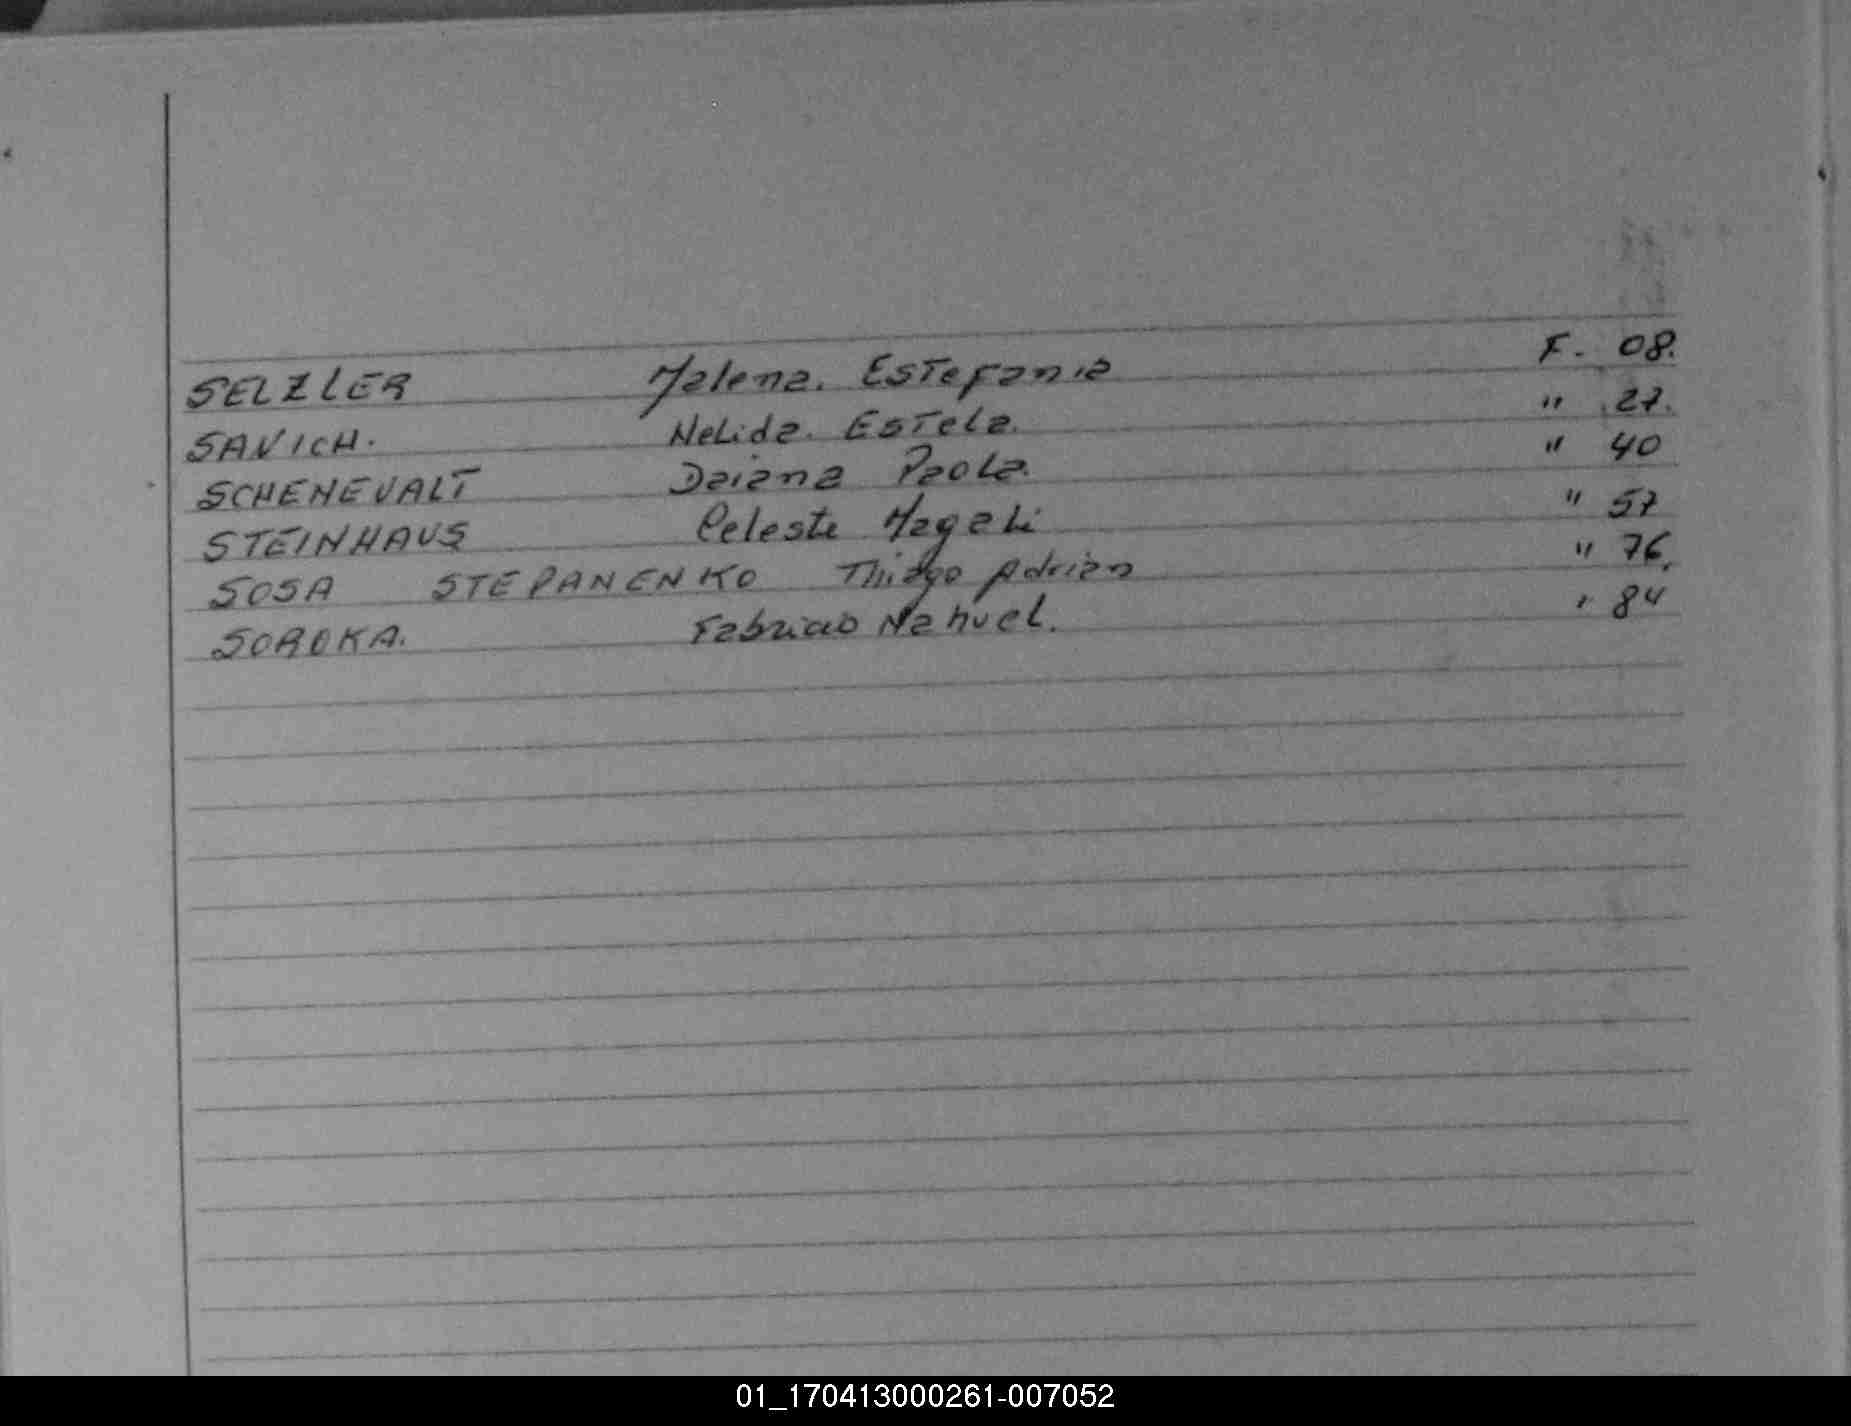 SELZLER Malena. Estefania F. 08.
SAVICH. Nelida. Estela. " 27.
SCHENEVALT Daiana Paola. " 40
STEINHAUS Celeste Magali " 57
SOSA STEPANENKO Thiago Adrian " 76.
SOROKA. Fabricio Nahuel. " 84
01_170413000261-007052